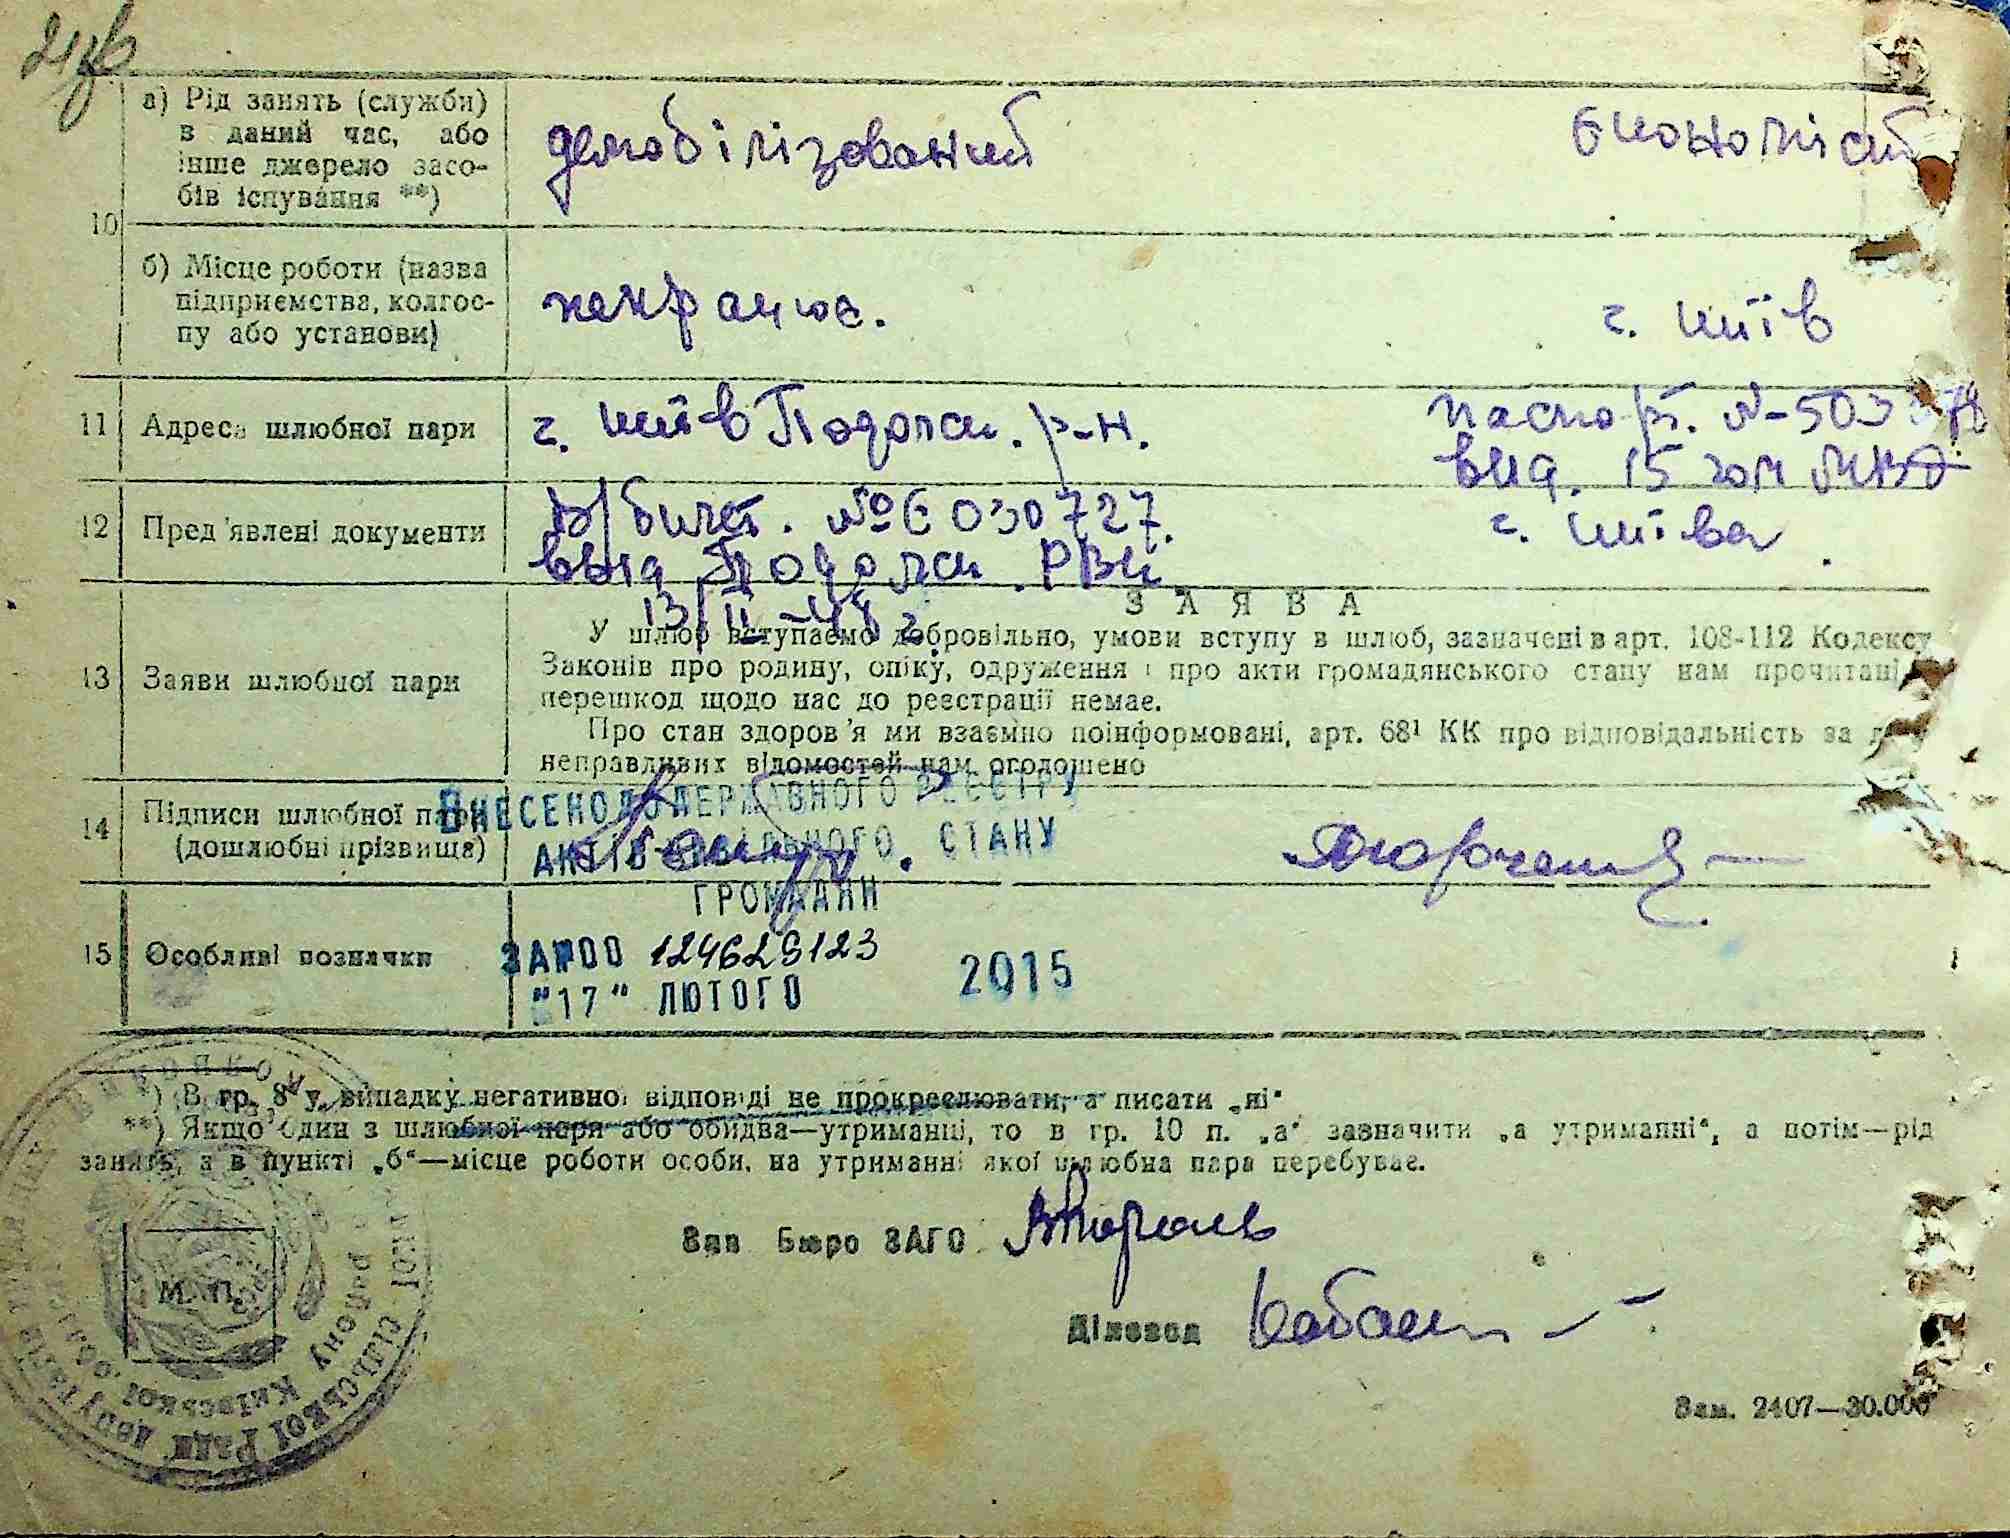 10
а) Рід занять (служби)
в даний час, або
інше джерело засо-
бів існування **)
демобілізований
економіст
б) Місце роботи (назва
підприємства, колгос-
пу або установи)
непрацює.
г. Київ
11 Адреса шлюбної пари
г. Київ Подольск. р-н.
паспорт. №-503378
вид. 15 гом МВД
г. Київа
12 Пред'явлені документи
В/билет. №Є 030727.
выд Подольск. РВК
13/II-48 г.
13 Заяви шлюбної пари
ЗАЯВА
У шлюб вступаємо добровільно, умови вступу в шлюб, зазначені в арт. 108-112 Кодексу
Законів про родину, опіку, одруження і про акти громадянського стану нам прочитані,
перешкод щодо нас до реєстрації немає.
Про стан здоров'я ми взаємно поінформовані, арт. 68¹ КК про відповідальність за
неправдивих відомостей нам оголошено
14 Підписи шлюбної пари
(дошлюбні прізвища)
ВНЕСЕНО ДО ДЕРЖАВНОГО РЕЄСТРУ
АКТІВ ЦИВІЛЬНОГО СТАНУ
ГРОМАДЯН
15 Особливі позначки
ЗА №00 124629123
"17" ЛЮТОГО 2015
*) В гр. 8 у випадку негативної відповіді не прокреслювати, а писати „ні“
**) Якщо один з шлюбної пари або обидва—утриманці, то в гр. 10 п. „а“ зазначити „а утриманні“, а потім—рід
занять, а в пункті „б“—місце роботи особи, на утриманні якої шлюбна пара перебуває.
Зав Бюро ЗАГС Король
Діловод
М. П.
Зам. 2407—30.000